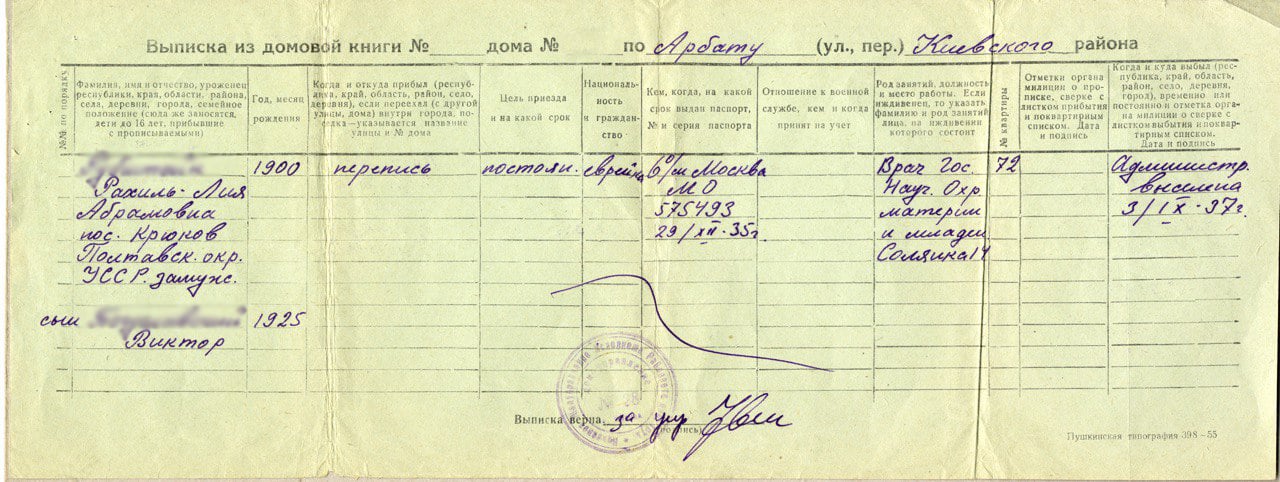 Выписка из домовой книги № дома № по Арбату (ул., пер.) Киевского района
№№ по порядку
Фамилия, имя и отчество, уроженец
республики, края, области, района,
села, деревни, города, семейное
положение (сюда же заносятся,
дети до 16 лет, прибывшие
с прописываемыми)
Год, месяц
рождения
Когда и откуда прибыл (респуб-
лика, край, область, район, село,
деревня), если переехал (с другой
улицы, дома) внутри города, по-
селка—указывается название
улицы и № дома
Цель приезда
и на какой срок
Националь-
ность
и граждан-
ство
Кем, когда, на какой
срок выдан паспорт,
№ и серия паспорта
Отношение к военной
службе, кем и когда
принят на учет
Род занятий, должность
и место работы. Если
иждивенец, то указать
фамилию и род занятий
лица, на иждивении
которого состоит
№ квартиры
Отметки органа
милиции о про-
писке, сверке с
листком прибытия
и поквартирным
списком. Дата
и подпись
Когда и куда выбыл (рес-
публика, край, область,
район, село, деревня,
город), временно или
постоянно и отметка орга-
на милиции о сверке с
листком выбытия и поквар-
тирным списком.
Дата и подпись
1900 перепись постоян. еврейка б/м Москва Врач Гос. 72 Администр.
Рахиль-Лия МО Науч. Охр. выселена
Абрамовна 575493 материн 3/IX-37г.
пос. Крюков 29/XII-35г и младен
Полтавск. окр. Солянка 14
УССР. замуж.
сын 1925
Виктор
Выписка верна. за упр
(подпись)
Пушкинская типография 398—55